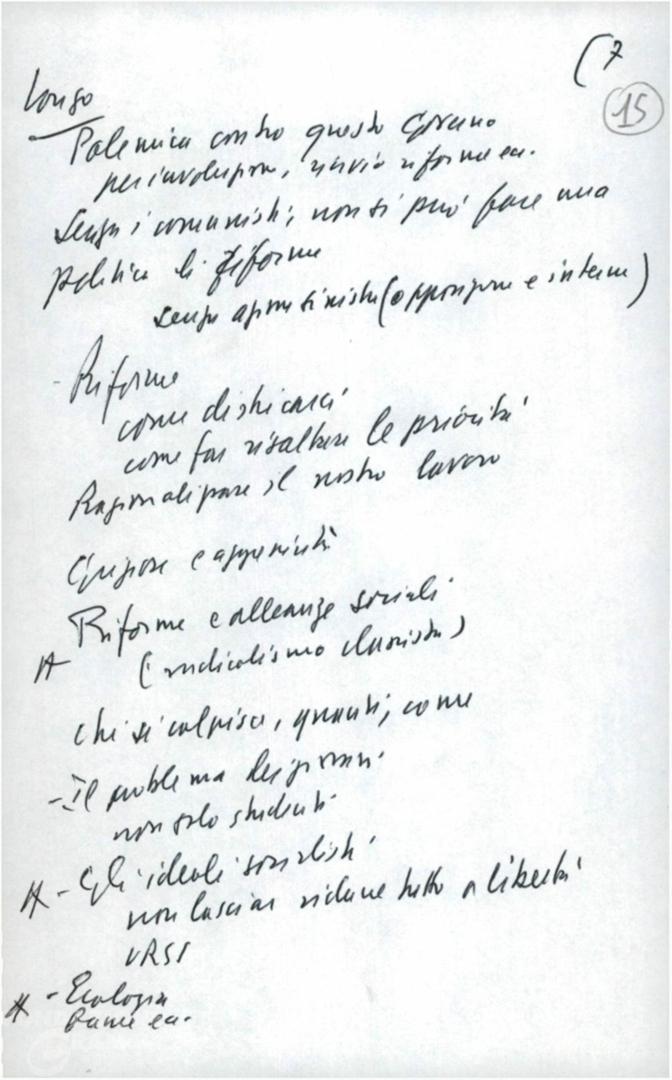 (7
15
Longo
Polemica contro questo Governo
per involuzione, rinvio riforme ecc.
Senza i comunisti, non si può fare una
politica di riforme
senza agire sinistra (opposizione e interne)
- Riforme
come districarci
come far risaltare le priorità
Razionalizzare il nostro lavoro
e
Riforme e alleanze sociali
(radicalismo classista)
Chi si colpisce, quanti, come
- Il problema dei giovani
non solo studenti
- Gli ideali socialisti
non lasciar ridurre tutto a libertà
URSS
- Ecologia
Pance ecc.